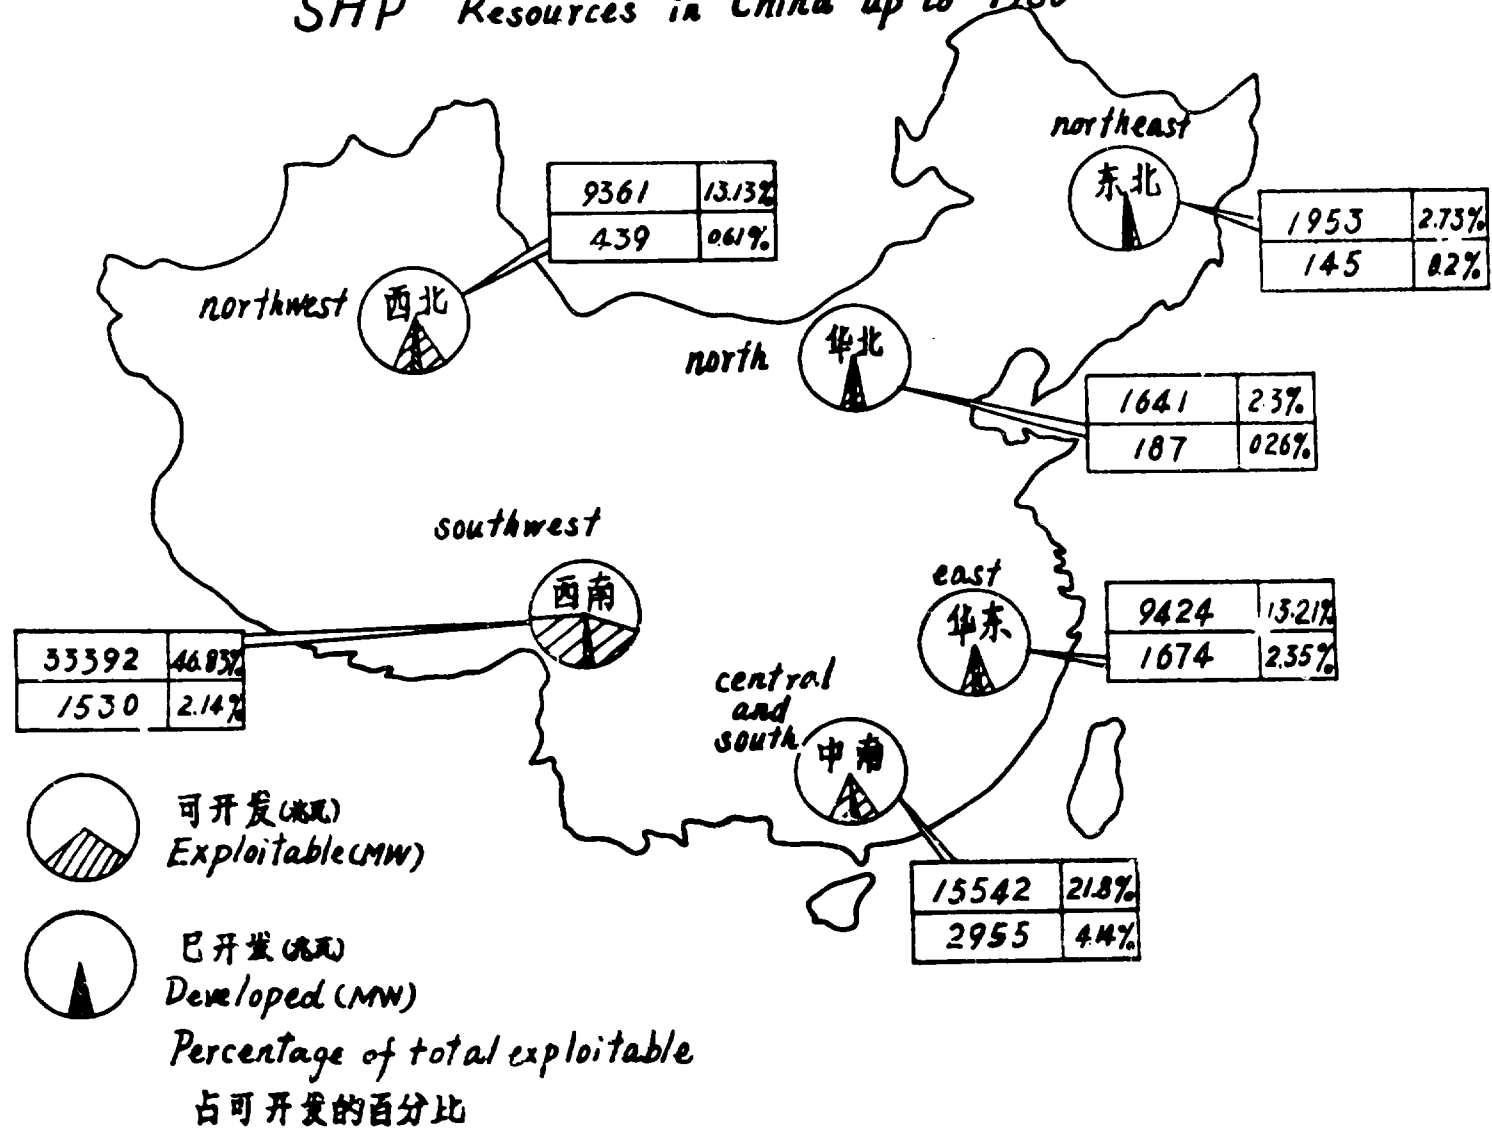 SHP Resources in China up to 1980
northeast
东北
1953 2.73%
145 0.2%
9361 13.13%
439 0.61%
northwest
西北
north
华北
1641 2.3%
187 0.26%
southwest
西南
33392 46.83%
1530 2.14%
east
华东
9424 13.21%
1674 2.35%
central
and
south
中南
15542 21.8%
2955 4.14%
可开发(兆瓦)
Exploitable(MW)
已开发(兆瓦)
Developed(MW)
Percentage of total exploitable
占可开发的百分比